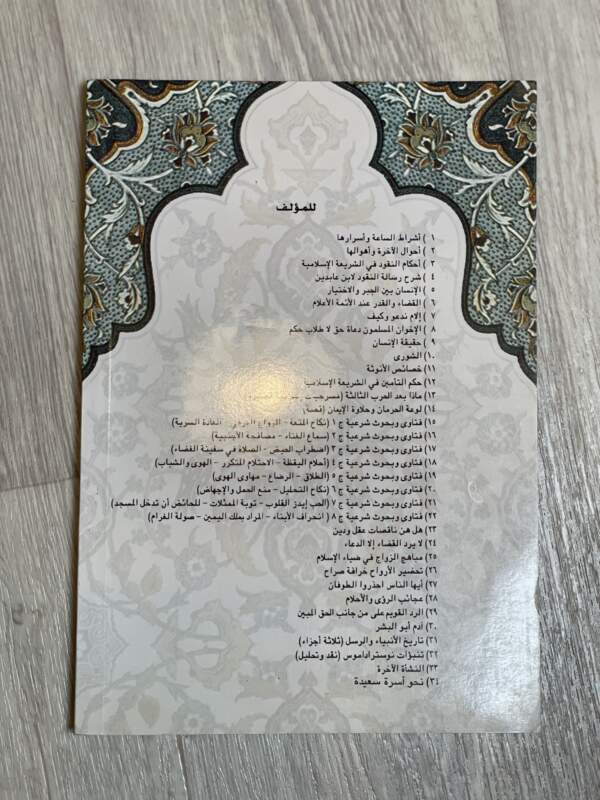 للمؤلف
١ ) أشراط الساعة وأسرارها
٢ ) أحوال الآخرة وأهوالها
٣ ) أحكام النقود في الشريعة الإسلامية
٤ ) شرح رسالة النقود لابن عابدين
٥ ) الإنسان بين الجبر والاختيار
٦ ) القضاء والقدر عند الأئمة الأعلام
٧ ) إلام ندعو وكيف
٨ ) الإخوان المسلمون دعاة حق لا طلاب حكم
٩ ) حقيقة الإنسان
١٠) الشورى
١١) خصائص الأنوثة
١٢) حكم التأمين في الشريعة الإسلامية
١٣) ماذا بعد الحرب الثالثة (مسرحيات
١٤) لوعة الحرمان وحلاوة الإيمان (قصة)
١٥) فتاوى وبحوث شرعية ج ١ (نكاح المتعة - الزواج العرفي - العادة السرية)
١٦) فتاوى وبحوث شرعية ج ٢ (سماع الغناء - مصافحة الأجنبية)
١٧) فتاوى وبحوث شرعية ج ٣ (اضطراب الحيض - الصلاة في سفينة الفضاء)
١٨) فتاوى وبحوث شرعية ج ٤ (أحلام اليقظة - الاحتلام المتكرر - الهوى والشباب)
١٩) فتاوى وبحوث شرعية ج ٥ (الطلاق - الرضاع - مهاوى الهوى)
٢٠) فتاوى وبحوث شرعية ج ٦ (نكاح التحليل - منع الحمل والإجهاض)
٢١) فتاوى وبحوث شرعية ج ٧ (الحب إيدز القلوب - توبة الممثلات - للحائض أن تدخل المسجد)
٢٢) فتاوى وبحوث شرعية ج ٨ ( انحراف الأبناء - المراد بملك اليمين - صولة الغرام)
٢٣) هل هن ناقصات عقل ودين
٢٤) لا يرد القضاء إلا الدعاء
٢٥) مباهج الزواج في ضياء الإسلام
٢٦) تحضير الأرواح خرافة صراح
٢٧) أيها الناس احذروا الطوفان
٢٨) عجائب الرؤى والأحلام
٢٩) الرد القويم على من جانب الحق المبين
٣٠) آدم أبو البشر
٣١) تاريخ الأنبياء والرسل (ثلاثة أجزاء)
٣٢) تنبؤات نوستراداموس (نقد وتحليل)
٣٣) النشأة الآخرة
٣٤) نحو أسرة سعيدة